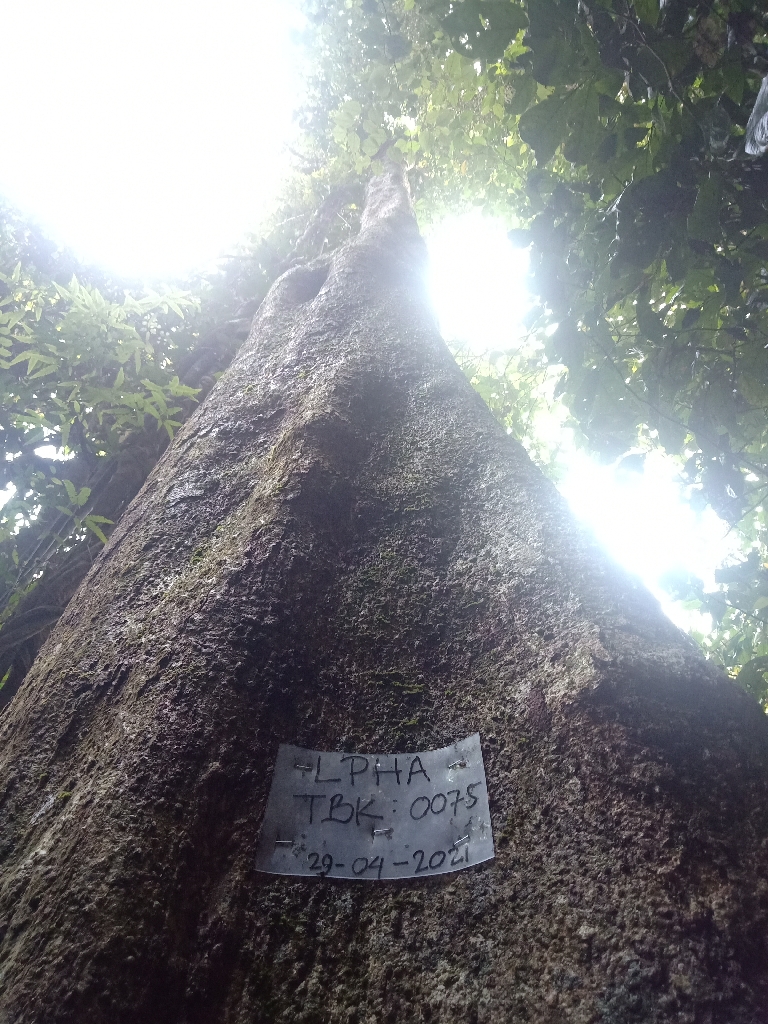 LPHA
TBK: 0075
29-04-2021